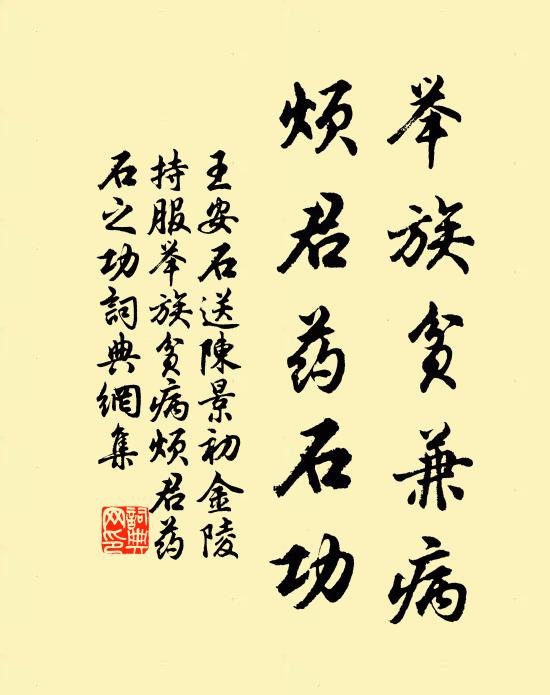 举族贫兼病
烦君药石功
王安石送陳景初金陵
持服举族贫病烦君药
石之功詞典網集
詞典
网印